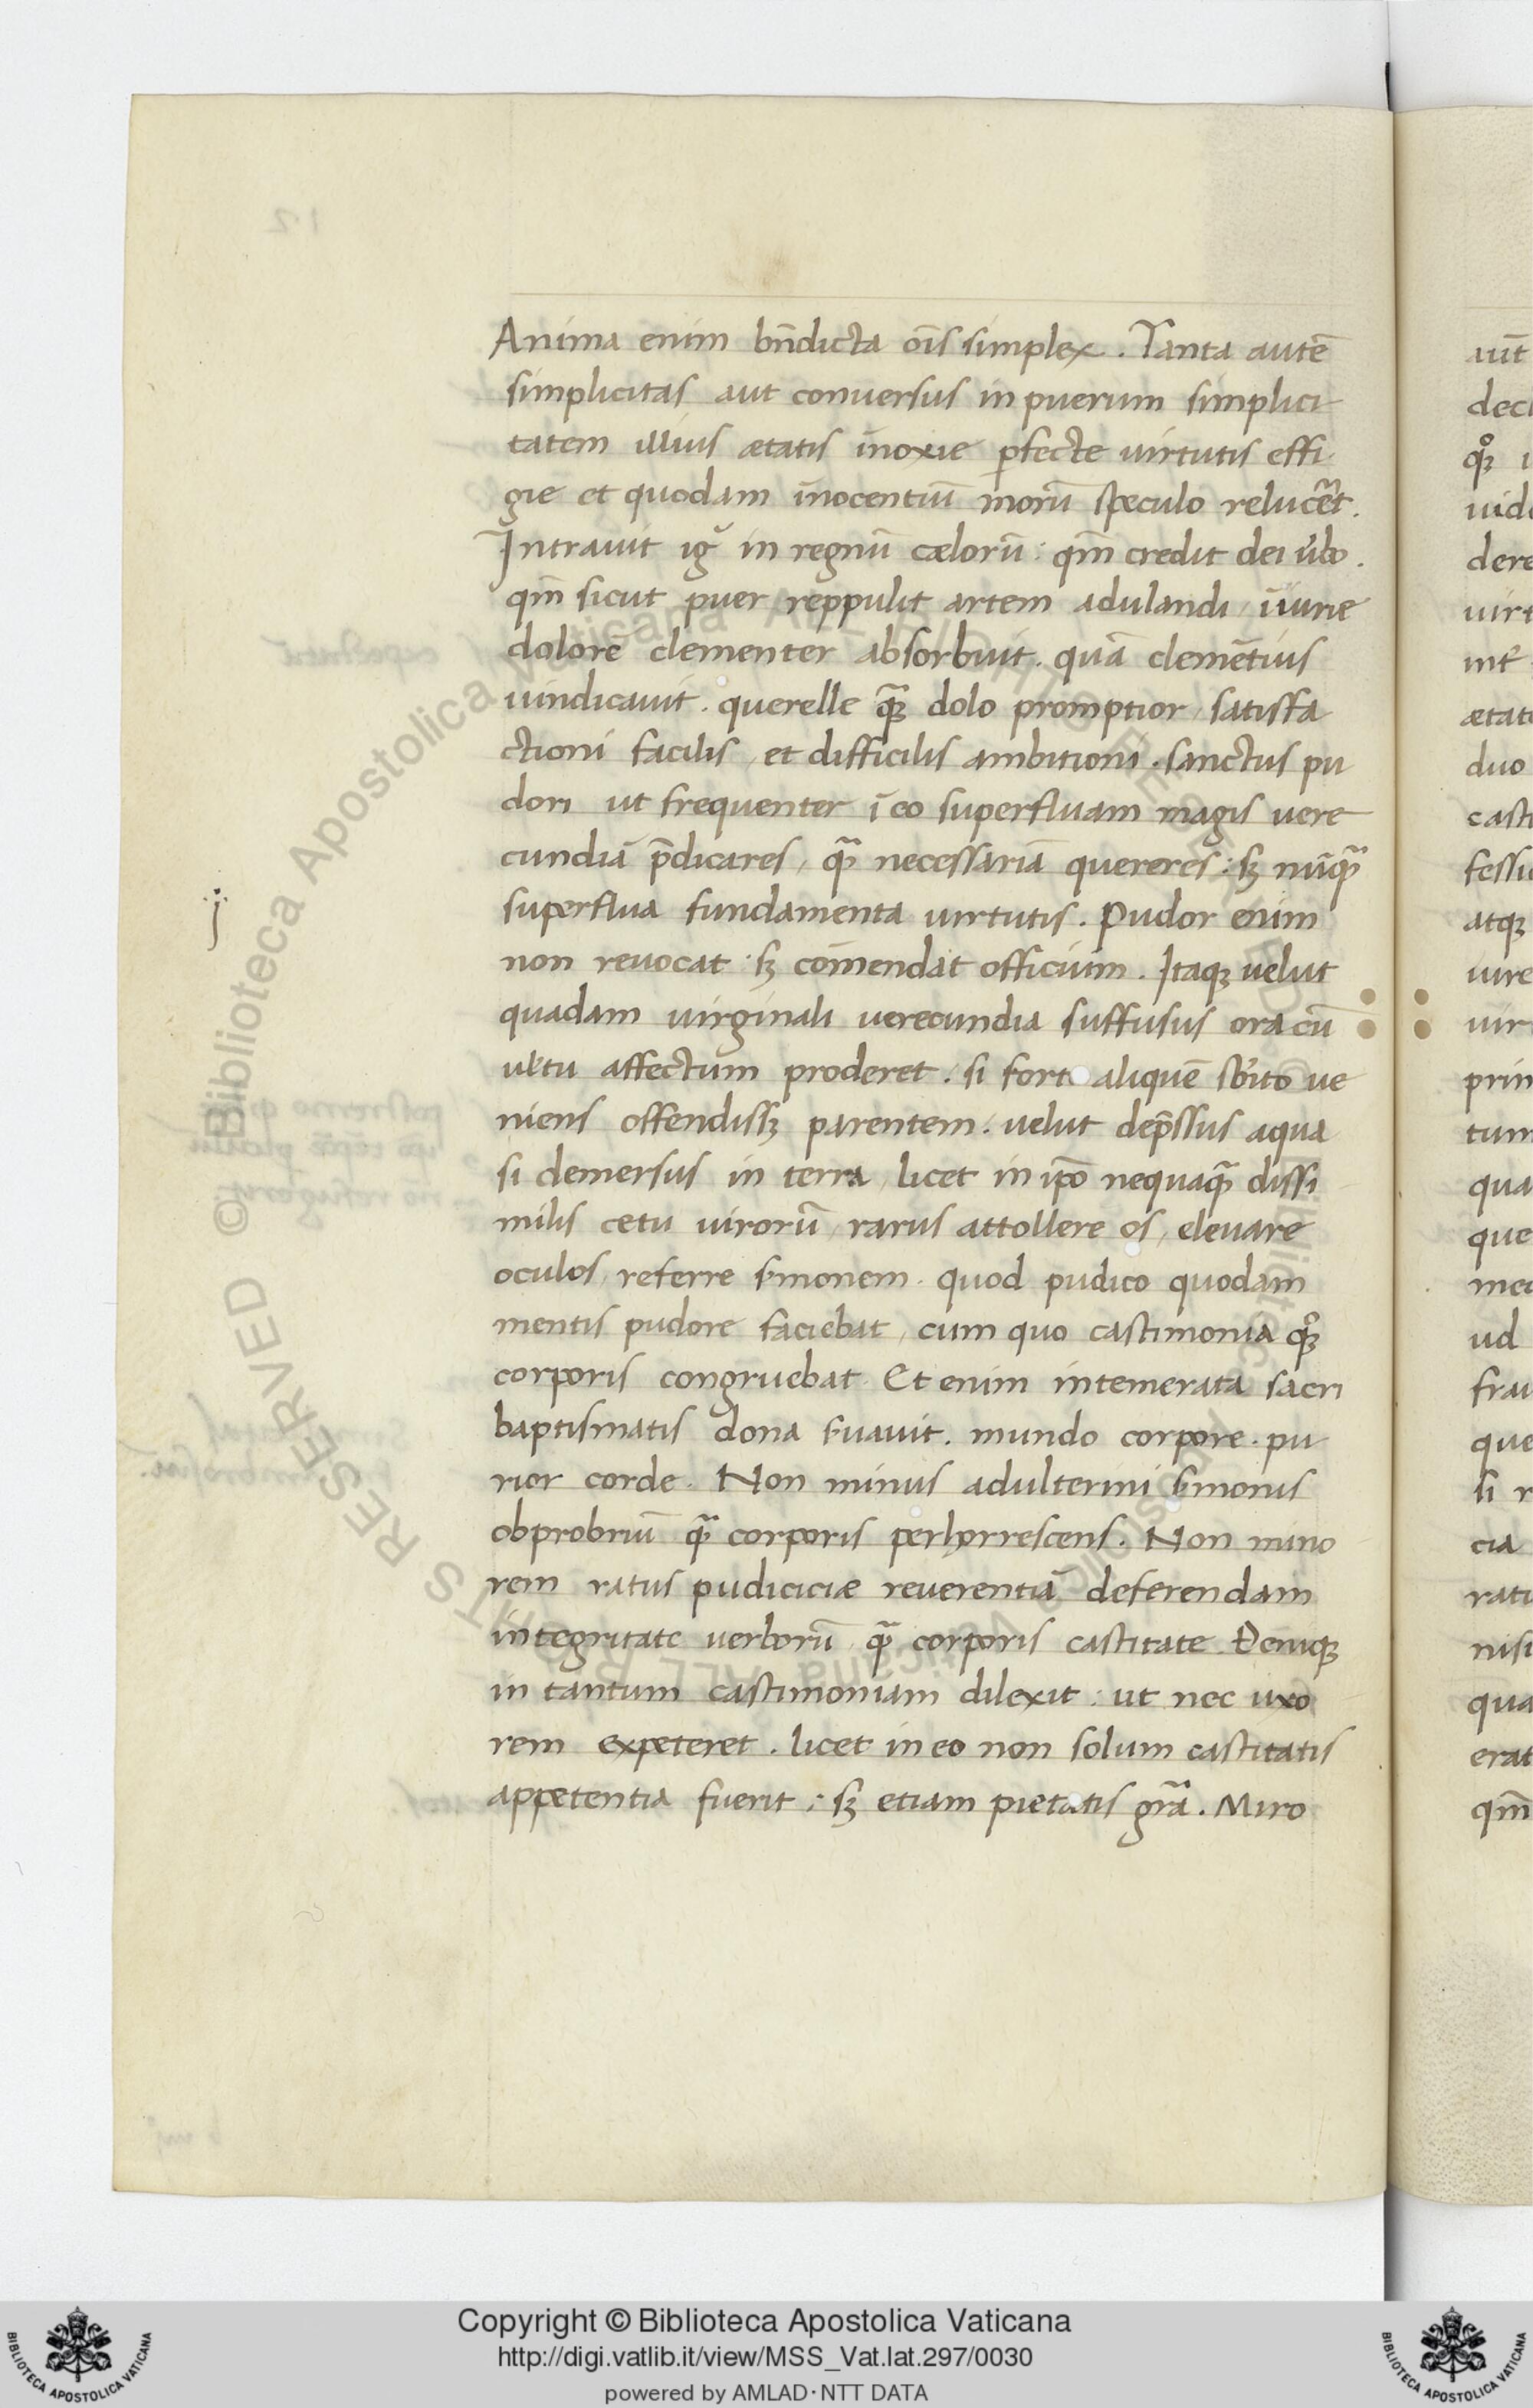 Anima enim bn̄dicta oīs simplex. Tanta autē
simplicitas aut conuersus in puerum simplici
tatem illius ætatis īnoxie ꝑfecte uirtutis effi
gie et quodam īnocentiū morū speculo relucēt.
Intrauit ig̃ in regnū cælorū: qm̄ credit dei ūbo.
qm̄ sicut puer reppulit artem adulandi, iīurie
dolorē clementer absorbuit. quā clemētius
uindicauit. querelle qꝫ dolo promptior, satisfa
ctioni facilis, et difficilis ambitioni. sanctus pu
dori ut frequenter ī eo superfluam magis uere
cundiā p̄dicares, qꝫ̄ necessariā quereres: sꝫ nūqꝫ̄
superflua fundamenta uirtutis. Pudor enim
non reuocat: sꝫ com̄endat officium. Itaqꝫ uelut
quadam uirginali uerecundia suffusus ora cū
uĺtu affectum proderet. si forte aliquē sb̄ito ue
niens offendissꝫ parentem. uelut dep̄ssus aqua
si demersus in terra, licet in ip̄o nequaqꝫ̄ dissi
milis cetu uirorū, rarus attollere os, eleuare
oculos, referre s̄monem. quod pudico quodam
mentis pudore faciebat, cum quo castimonia qͦqꝫ
corporis congruebat. Et enim intemerata sacri
baptismatis dona s̄uauit. mundo corpore. pu
rior corde. Non minus adulterini s̄monis
obprobriū qꝫ̄ corporis perhorrescens. Non mino
rem ratus pudiciciæ reuerentiā deferendam
integritate uerborū, qꝫ̄ corporis castitate. Deniqꝫ
in tantum castimoniam dilexit: ut nec uxo
rem expeteret. licet in eo non solum castitatis
appetentia fuerit: sꝫ etiam pietatis gr̄a. Miro
j
Copyright © Biblioteca Apostolica Vaticana
http://digi.vatlib.it/view/MSS_Vat.lat.297/0030
powered by AMLAD·NTT DATA